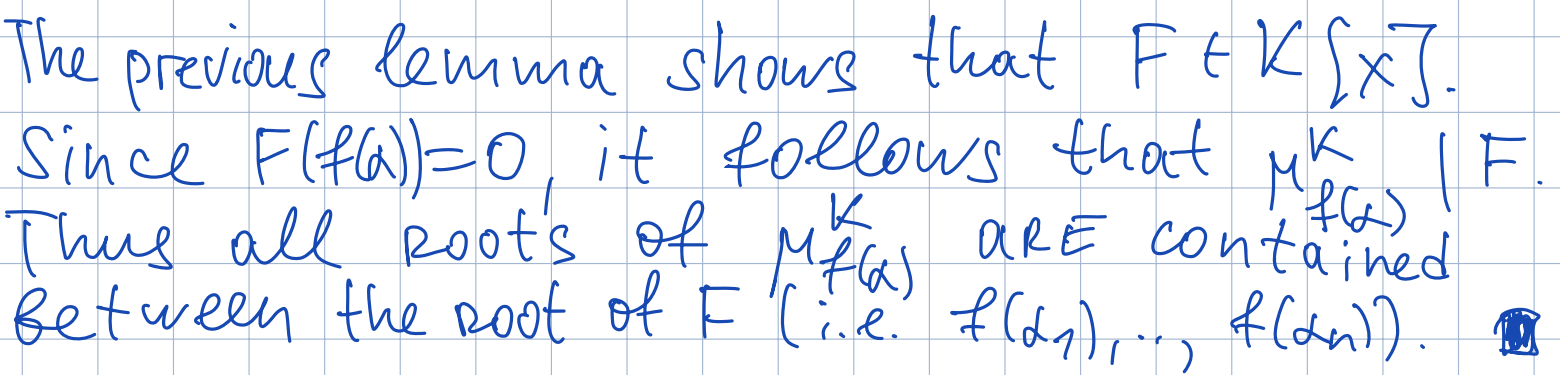 The previous lemma shows that F ∈ K[x].
Since F(f(α))=0, it follows that μ^K_{f(α)} | F.
Thus all roots of μ^K_{f(α)} are contained
between the root of F (i.e. f(α₁),..., f(αₙ)).